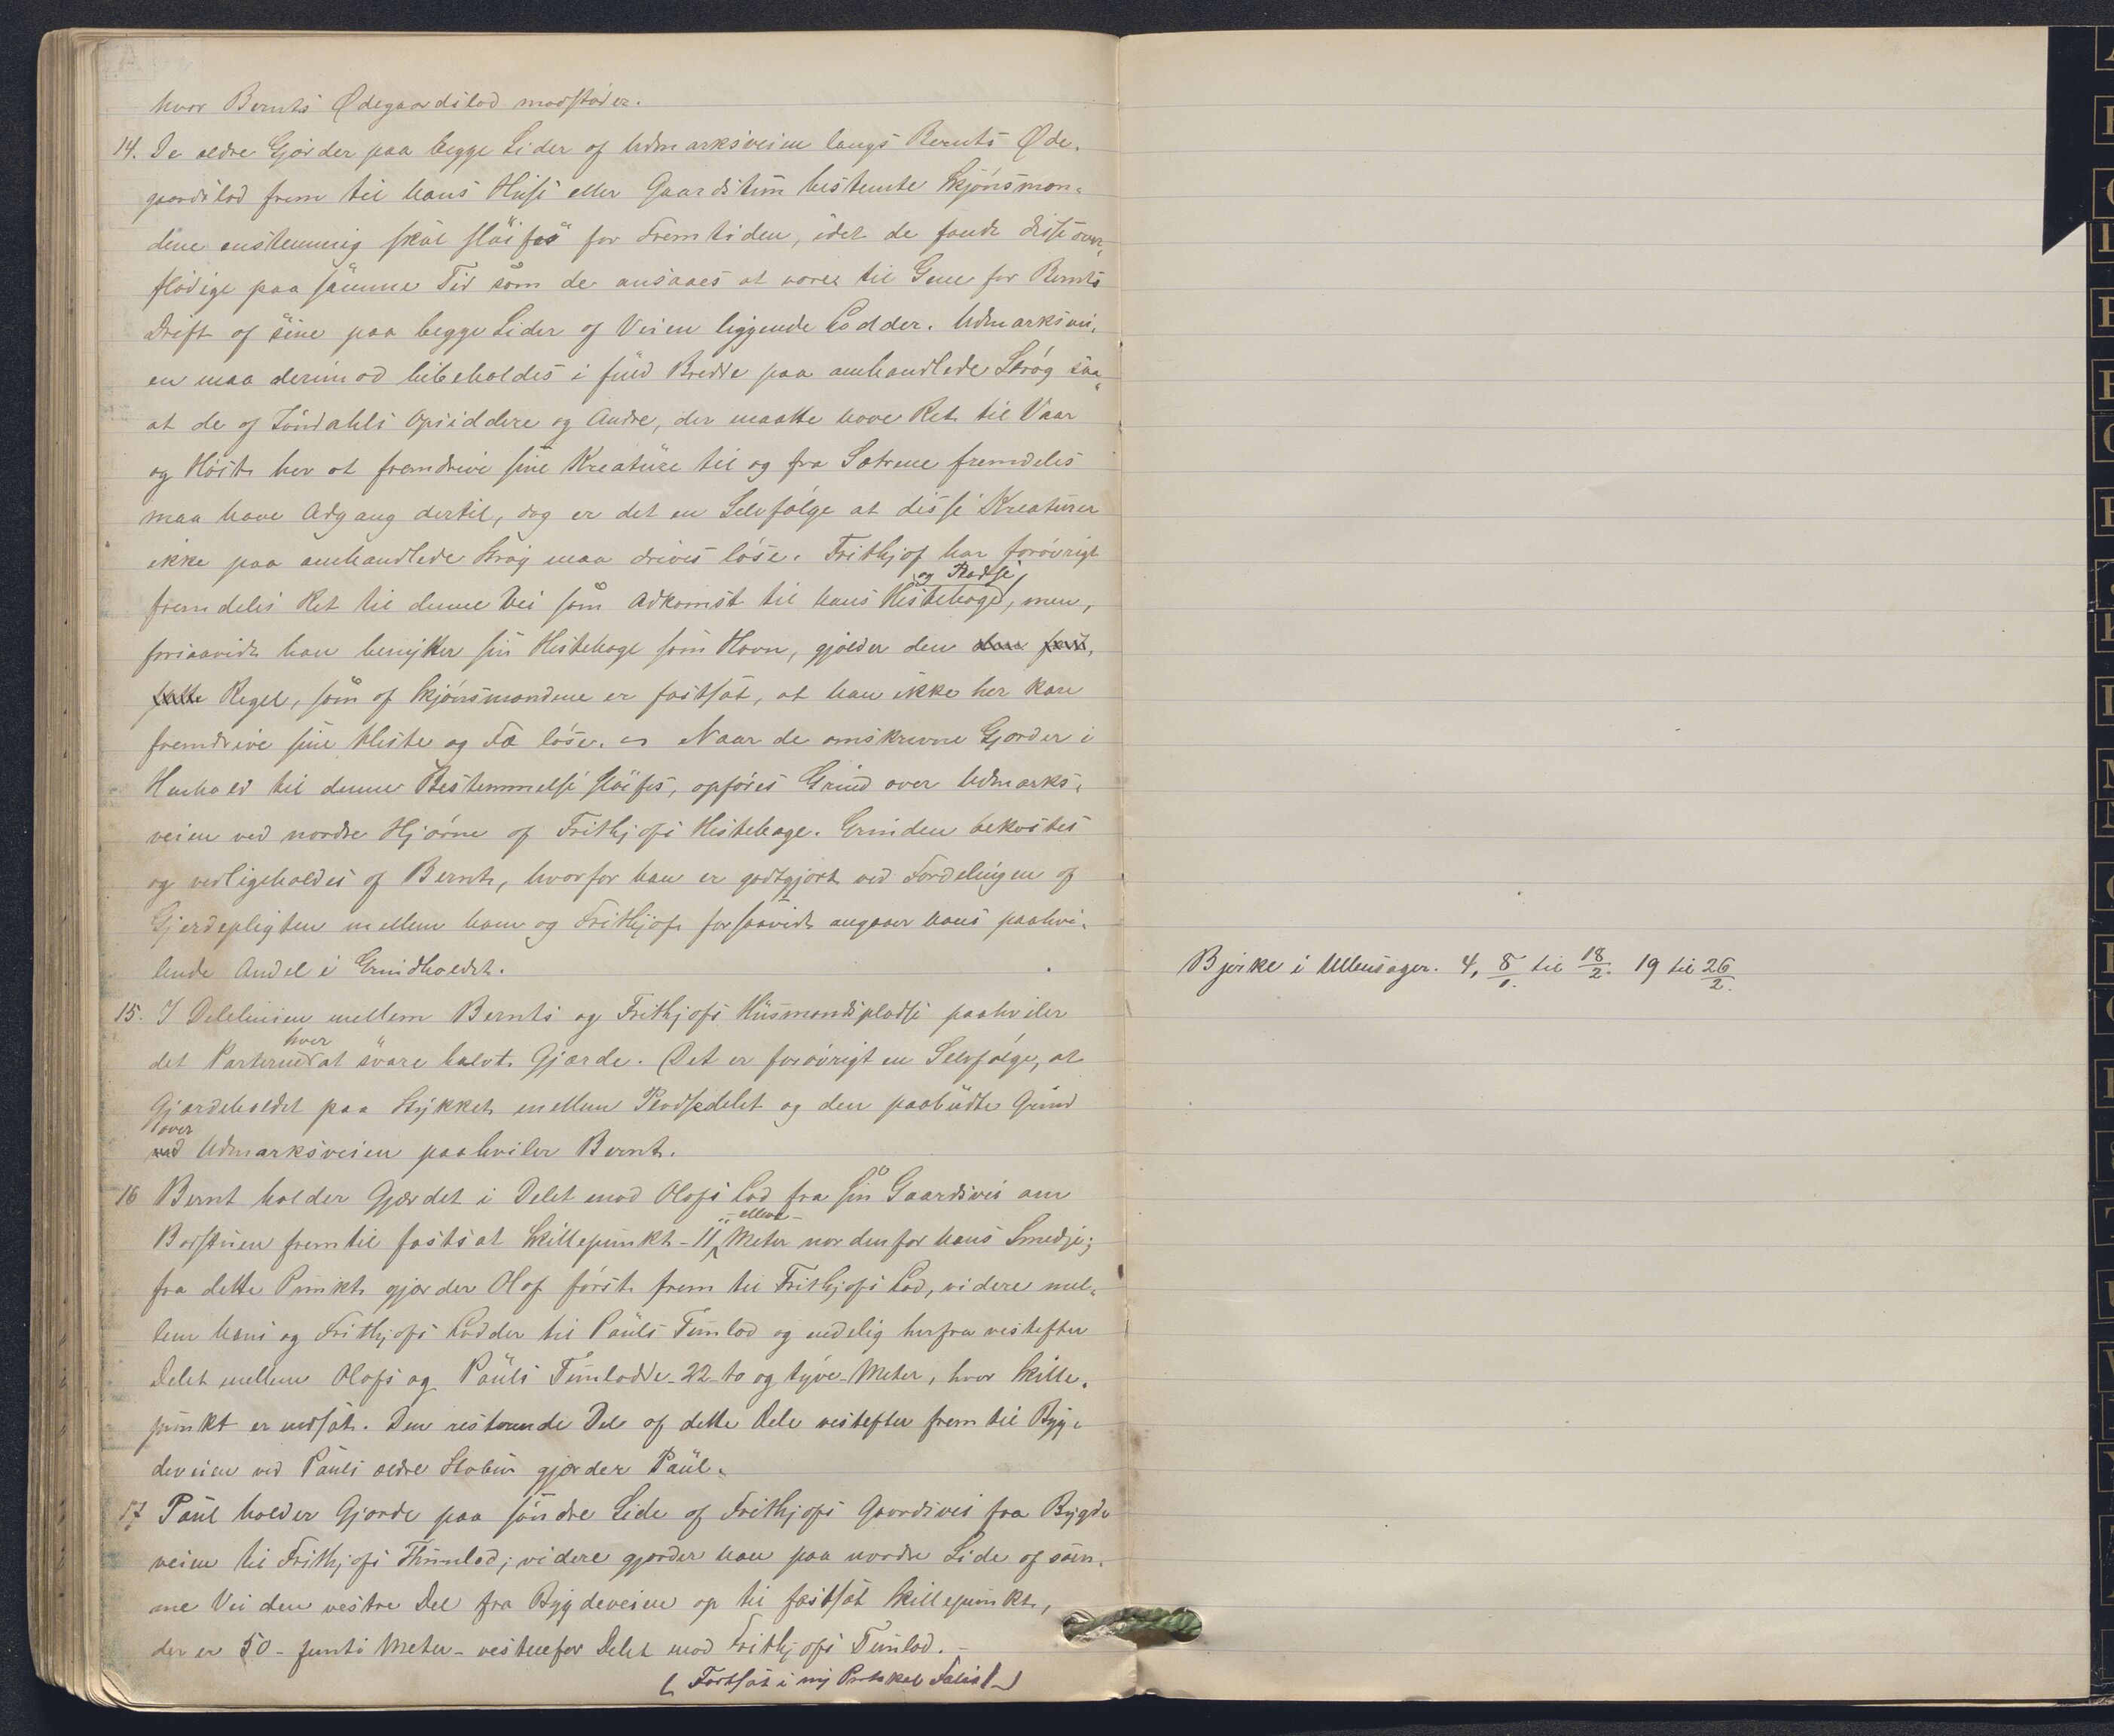 hvor Bernts Ødegaardslod modstøder.
14. De ældre Gjærder paa begge Sider af Udmarksveien langs Bernts Øde-
gaardslod frem til hans Huse eller Gaardstun bestemte Skjønsmæn-
dene enstemmig skal sløifes for Fremtiden, idet de fandt disse over-
flødige paa samme Tid som de ansaaes at være til Gene for Bernts
Drift af sine paa begge Sider af Veien liggende Lodder. Udmarksvei-
en maa derimod bibeholdes i fuld Bredde paa omhandlede Strøg saa
at de af Løndahls Opsiddere og Andre, der maatte have Ret til Vaar
og Høst her at fremdrive sine Kreature til og fra Sætrene fremdeles
maa have Adgang dertil, dog er det en Selvfølge at disse Kreaturer
ikke paa omhandlede Strøg maa drives løse. Frithjof har forøvrigt
og Pladse
fremdeles Ret til denne Vei som Adkomst til hans Hestehage, men,
forsaavidt han benytter sin Hestehage som Havn, gjælder den den fast-
satte Regel, som af Skjønsmændene er fastsat, at han ikke her kan
fremdrive sine Heste og Fæ løse. Naar de omskrevne Gjærder i
Henhold til denne Bestemmelse sløifes, opføres Grind over Udmarks-
veien ved nordre Hjørne af Frithjofs Hestehage. Grinden bekostes
og vedligeholdes af Bernt, hvorfor han er godtgjort ved Fordelingen af
Gjerdepligten mellem ham og Frithjof forsaavidt angaaer hans paahvi-
lende Andel i Grindholdet.
15. I Delelinien mellem Bernts og Frithjofs Husmandspladse paahviler
hver
det Parterne at svare halvt Gjærde. Det er forøvrigt en Selvfølge, at
Gjærdeholdet paa Stykket mellem Pladsedelet og den paabudte Grind
over
ved Udmarksveien paahviler Bernt.
16 Bernt holder Gjærdet i Delet mod Olafs Lod fra sin Gaardsvei om
- elleve -
Borstuen frem til fastsat Skillepunkt - 11 Meter nordenfor hans Smedje;
fra dette Punkt gjærder Olaf først frem til Frithjofs Lod, videre mel-
lem hans og Frithjofs Lodder til Pauls Tunlod og endelig herfra vestefter
Delet mellem Olafs og Pauls Tunlodde - 22 - to og tyve - Meter, hvor Skille-
punkt er nedsat. Den resterende Del af dette Dele vestefter frem til Byg-
deveien ved Pauls ældre Stabur gjærder Paul.
17 Paul holder Gjærde paa søndre Side af Frithjofs Gaardsvei fra Bygde
veien til Frithjofs Thunlod; videre gjærder han paa nordre Side af sam-
me Vei den vestre Del fra Bygdeveien op til fastsat Skillepunkt,
der er 50 - femti Meter - vestenfor Delet mod Frithjofs Tunlod. -
( Fortsat i ny Protokol Folio 1 )
Bjerke i Ullensager. 4, 8/1. til 18/2. 19 til 26/2.